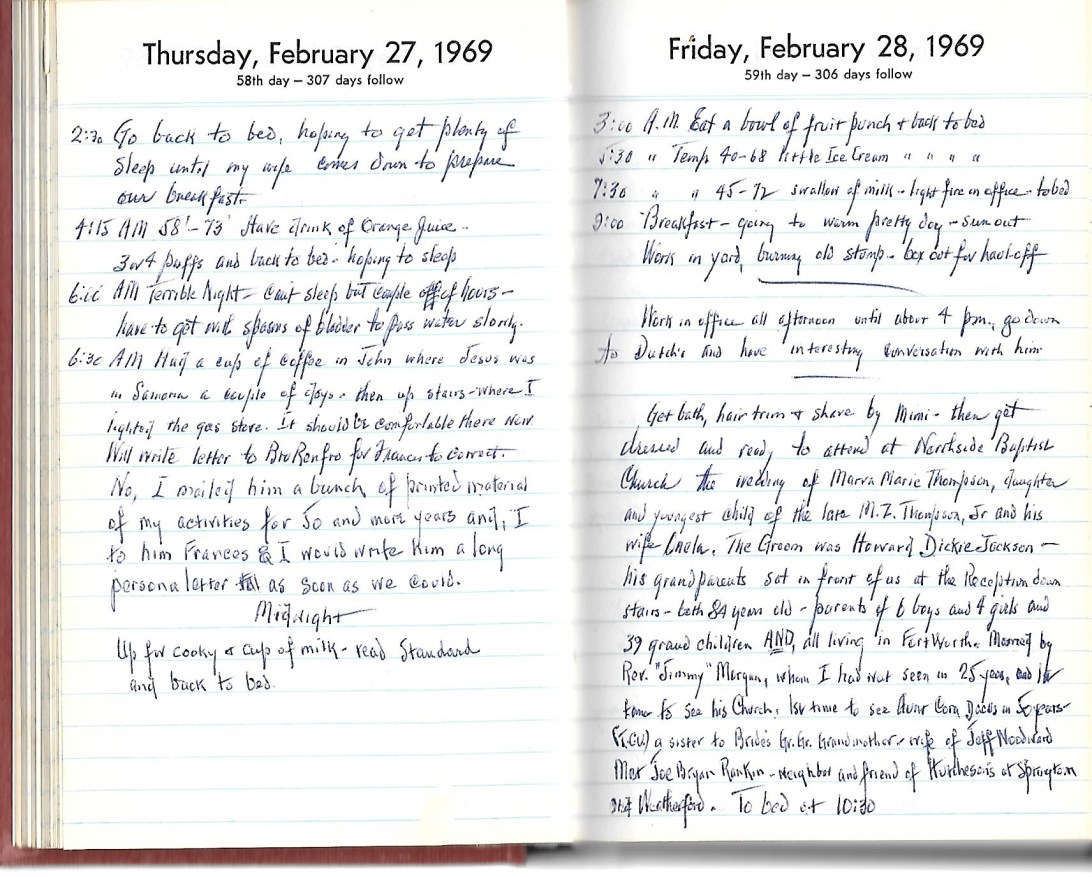 Thursday, February 27, 1969
58th day — 307 days follow
2:30 Go back to bed, hoping to get plenty of
sleep until my wife comes down to prepare
our breakfast.
4:15 AM 58'-73' Have drink of Orange Juice..
3 or 4 puffs and back to bed - hoping to sleep
AM Terrible Night - Can't sleep but couple of hours -
have to get with spasms of bladder to pass water slowly.
6:30 AM Had a cup of coffee in John where Jesus was
in a couple of days - then up stairs - where I
lighted the gas stove. It should be comfortable there now
Will write letter to Bro Renfro for Frances to correct.
No, I mailed him a bunch of printed material
of my activities for 50 and more years and, I
to him Frances & I would write him a long
personal letter as soon as we could.
Midnight
Up for cooky & cup of milk - read Standard
and back to bed.
Friday, February 28, 1969
59th day — 306 days follow
3:00 A.M. Eat a bowl of fruit punch & back to bed
5:30 " Temp 40-68 little Ice Cream " " " "
7:30 " " 45-72 swallow of milk - light fire in office - to bed
9:00 Breakfast - going to warm pretty day - sun out
Work in yard, burning old stomp - box out for haul-off
Work in office all afternoon until about 4 p.m., go down
to Dutch's and have interesting conversation with him.
Get bath, hair trim & shave by Mimi - then get
dressed and ready to attend at Northside Baptist
Church the wedding of Marva Marie Thompson, daughter
and youngest child of the late M.Z. Thompson, Jr and his
wife. The Groom was Howard Dickie Jackson -
his grandparents sat in front of us at the Reception down
stairs - both 84 years old - parents of 6 boys and 4 girls and
39 grand children AND, all living in Fort Worth. Married by
Rev. "Jimmy" Morgan, whom I had not seen in 25 years, and 1st
time to see his Church, 1st time to see Aunt Cora in 50 years-
(T.C.U.) a sister to Bride's Gr. Gr. Grandmother - wife of Jeff Woodward
Met Joe Bryan Rankin - neighbor and friend of Hutchesons at Springtown
and Weatherford. To bed at 10:30